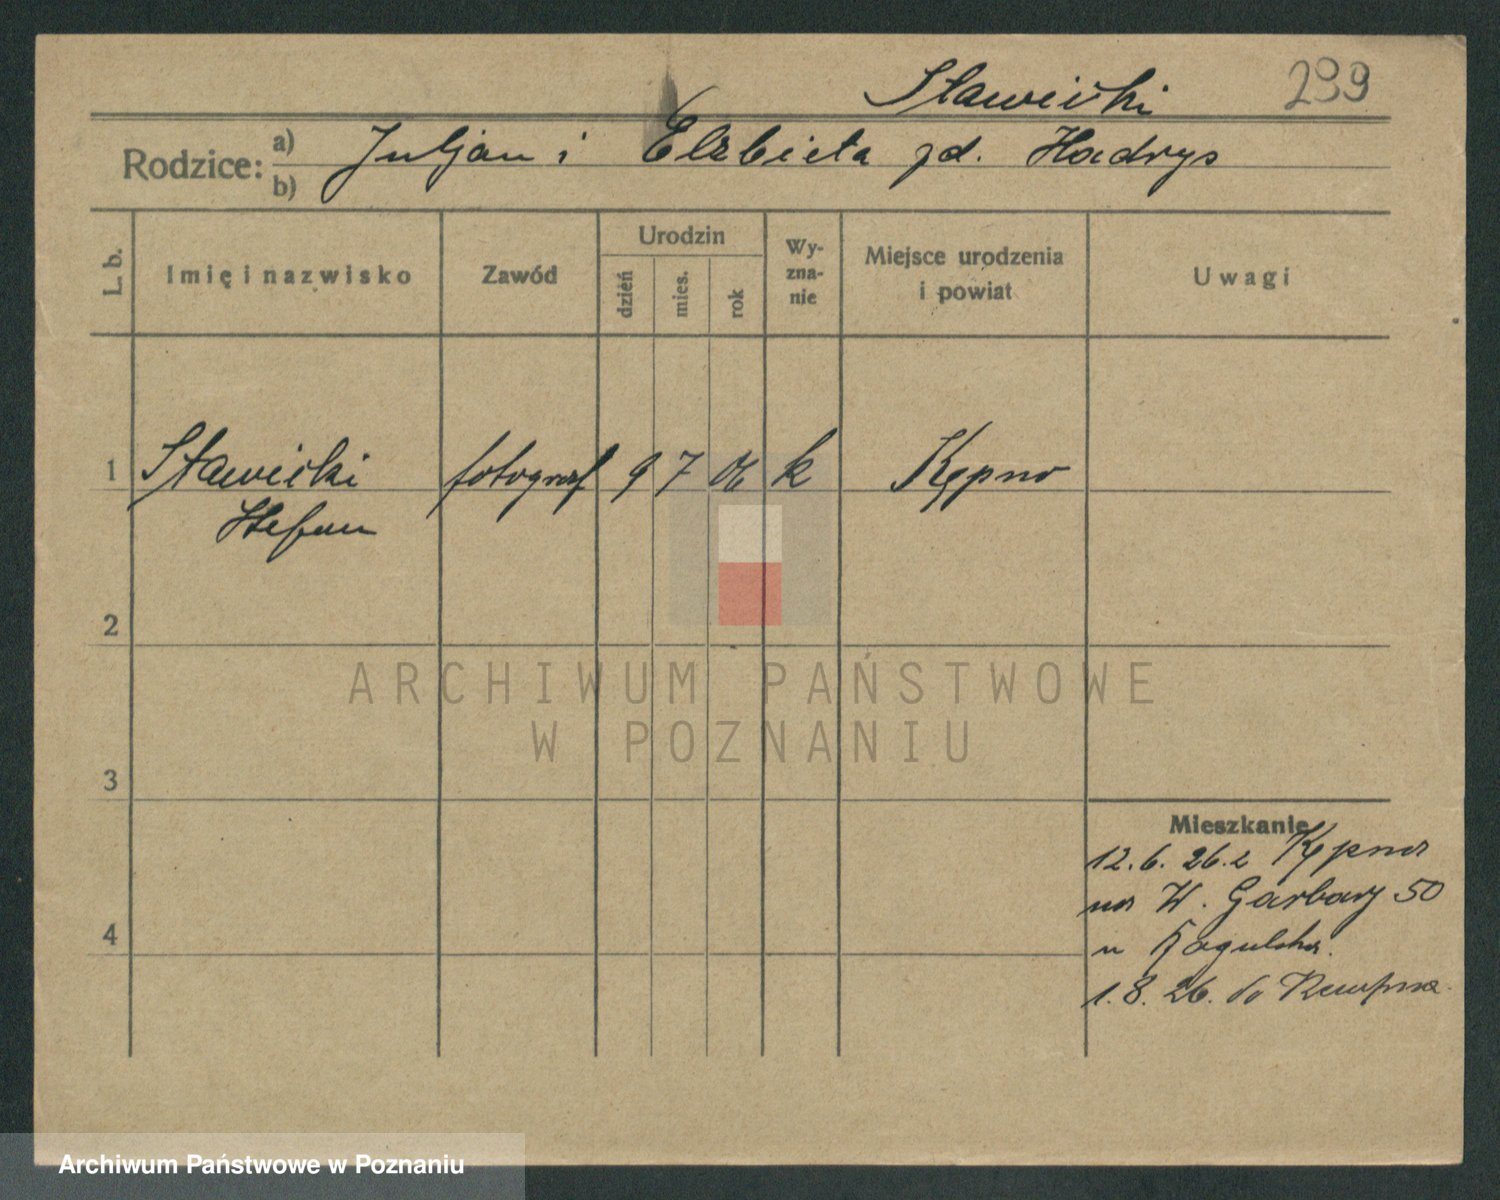 Sławicki 299
Rodzice: a) b) Juljan i Elżbieta zd. Hadrys
L. b. Imię i nazwisko Zawód Urodzin dzień mies. rok Wyzna-nie Miejsce urodzenia i powiat Uwagi
1 Sławicki fotograf 9 7 06 k Kępno
Stefan
2
3
Mieszkanie
12. 6. 26. z Kępna
na W. Garbary 50
4 u
1. 8. 26. do Kempna.
ARCHIWUM PAŃSTWOWE
W POZNANIU
Archiwum Państwowe w Poznaniu